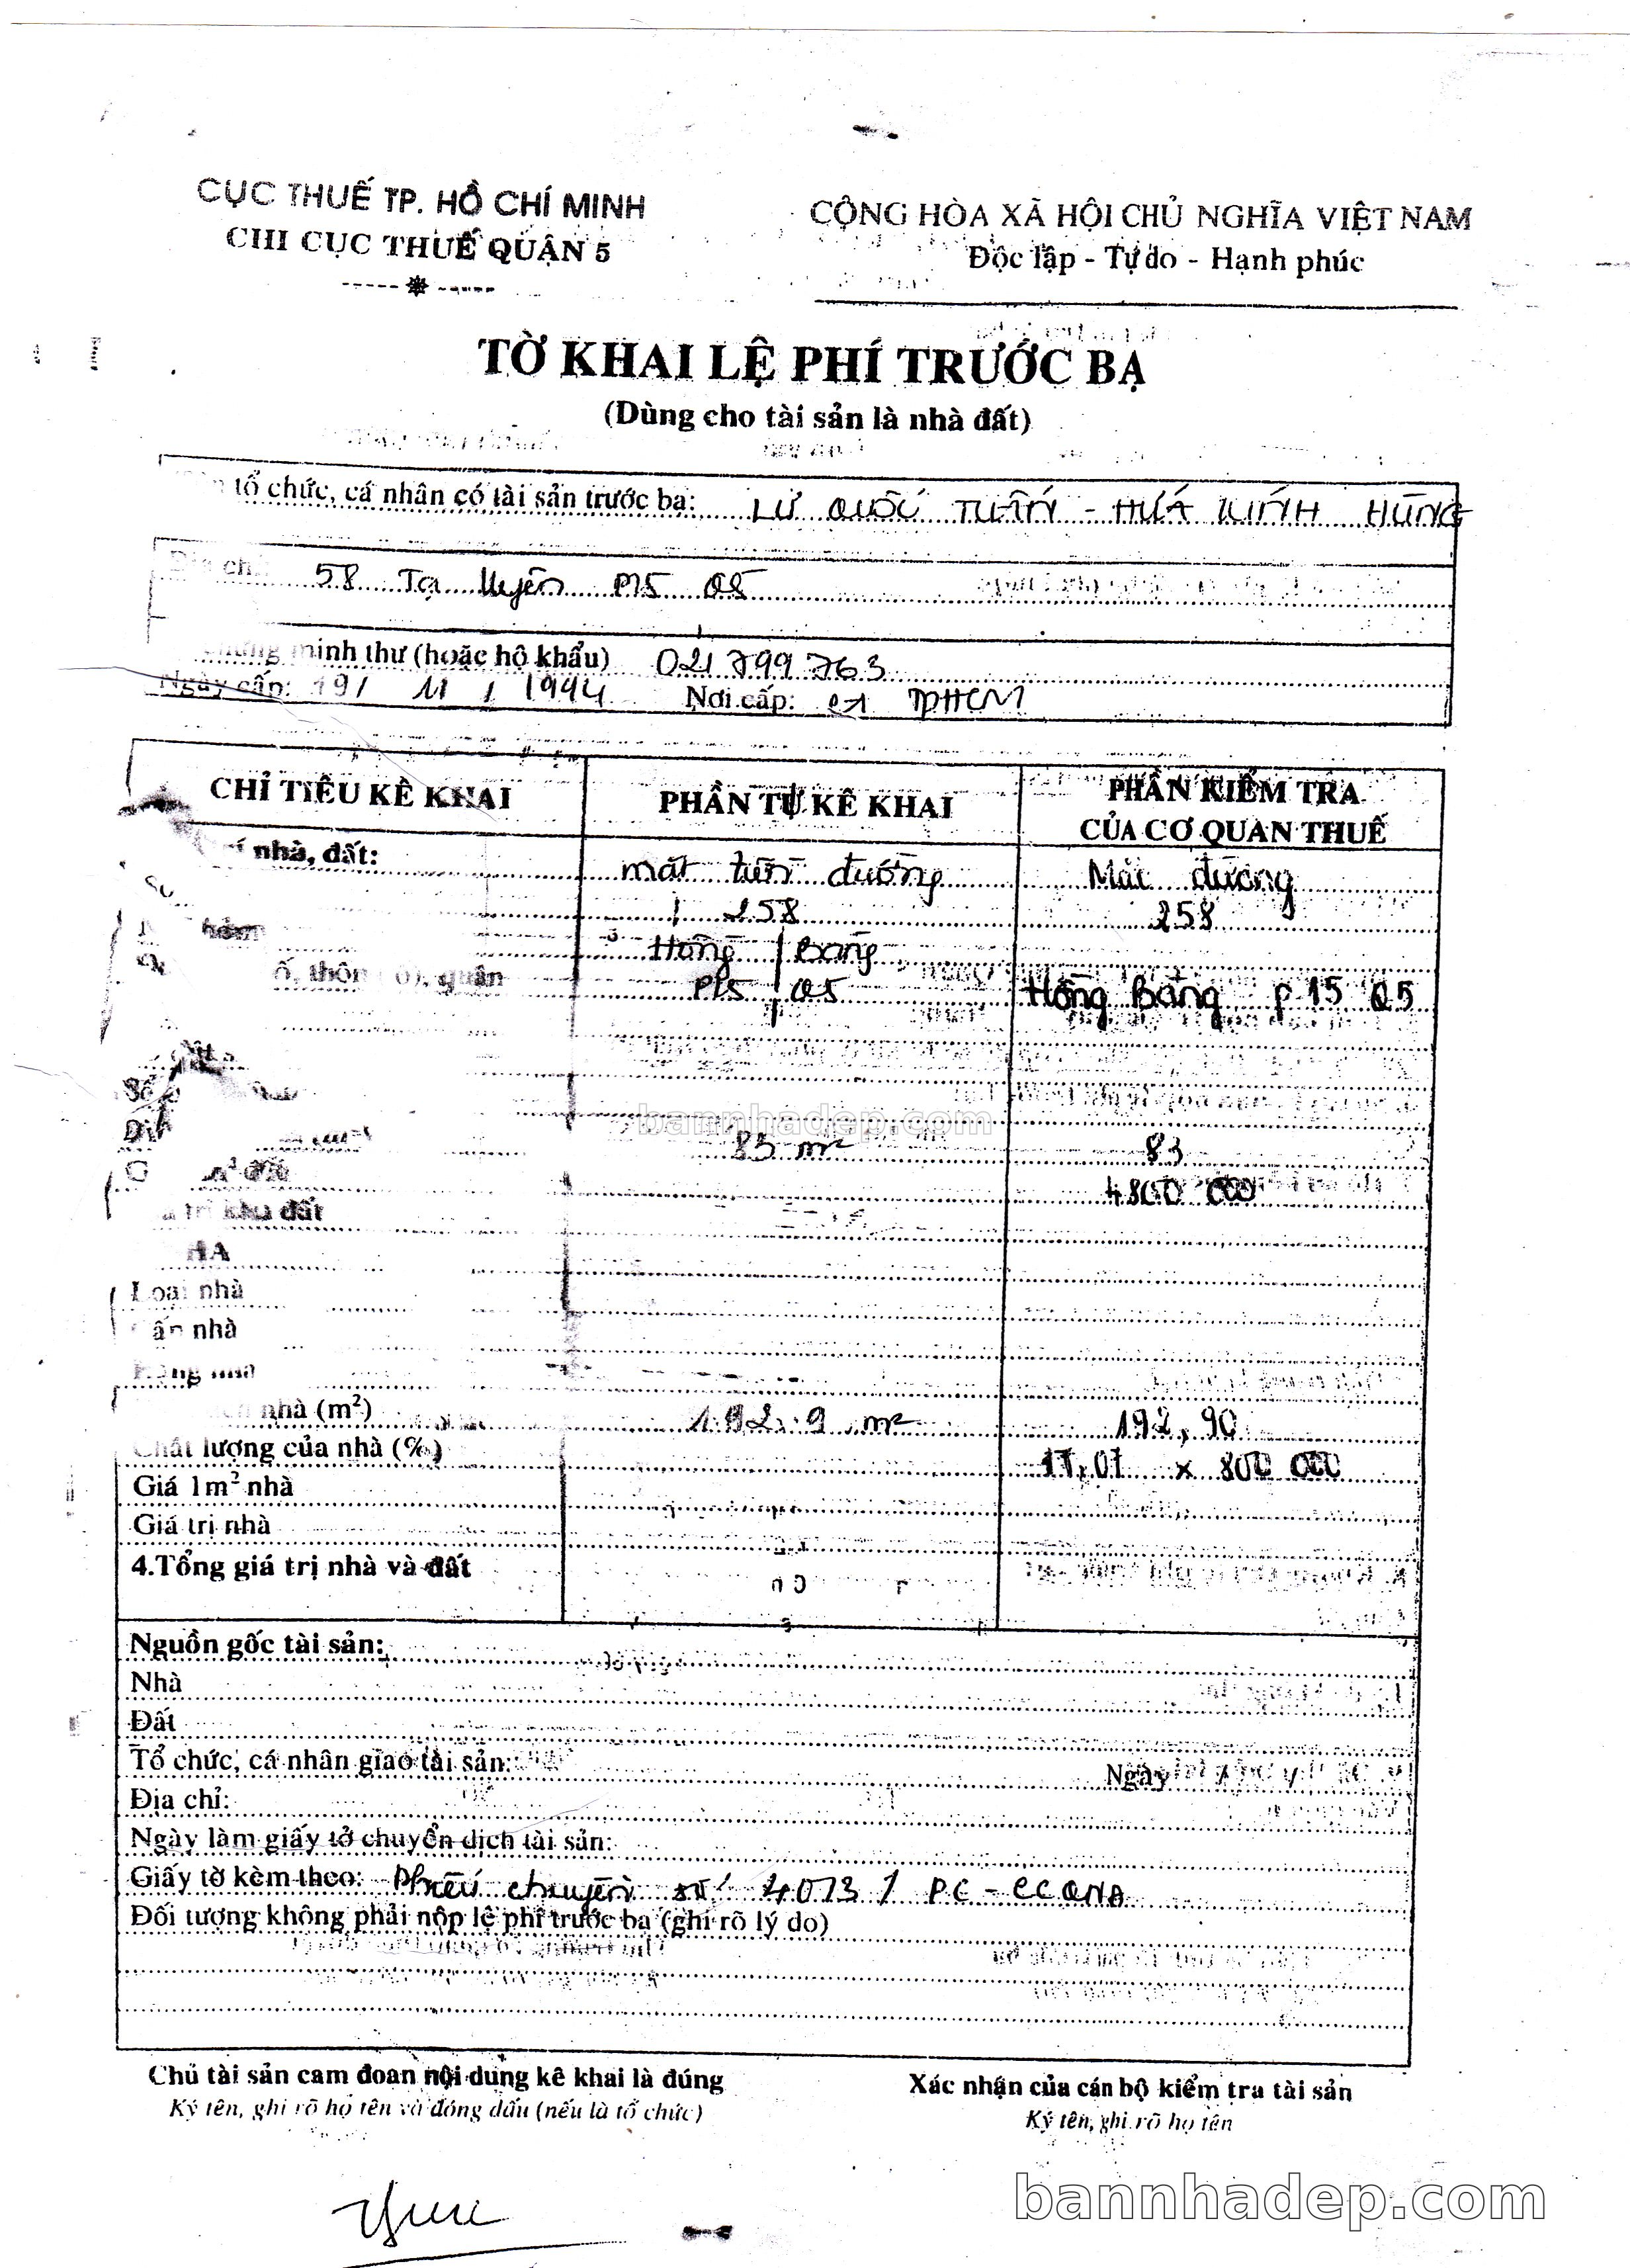 CỤC THUẾ TP. HỒ CHÍ MINH
CHI CỤC THUẾ QUẬN 5
CỘNG HÒA XÃ HỘI CHỦ NGHĨA VIỆT NAM
Độc lập - Tự do - Hạnh phúc
TỜ KHAI LỆ PHÍ TRƯỚC BẠ
(Dùng cho tài sản là nhà đất)
tổ chức, cá nhân có tài sản trước bạ: LƯ QUỐC TUẤN - HỨA KÍNH HÙNG
58 Tạ Uyên P15 Q5
minh thư (hoặc hộ khẩu) 021799763
Ngày cấp: 19 / 11 / 1994 Nơi cấp: CA TPHCM
CHỈ TIÊU KÊ KHAI PHẦN TỰ KÊ KHAI PHẦN KIỂM TRA
CỦA CƠ QUAN THUẾ
nhà, đất: mặt tiền đường Mặt đường
258 258
Hồng Bàng
thôn quận P15 Q5 Hồng Bàng P 15 Q5
83 m² 83
m² đất 4800 000
trị khu đất
Loại nhà
Cấp nhà
nhà (m²) 192.9 m² 192,90
Chất lượng của nhà (%) 17,01 x 800 000
Giá 1m² nhà
Giá trị nhà
4.Tổng giá trị nhà và đất
Nguồn gốc tài sản:
Nhà
Đất
Tổ chức, cá nhân giao tài sản: Ngày
Địa chỉ:
Ngày làm giấy tờ chuyển dịch tài sản:
Giấy tờ kèm theo: Phiếu chuyển số 40131 PC - CCQNĐ
Đối tượng không phải nộp lệ phí trước bạ (ghi rõ lý do)
Chủ tài sản cam đoan nội dung kê khai là đúng
Ký tên, ghi rõ họ tên và đóng dấu (nếu là tổ chức)
Xác nhận của cán bộ kiểm tra tài sản
Ký tên, ghi rõ họ tên
bannhadep.com
bannhadep.com